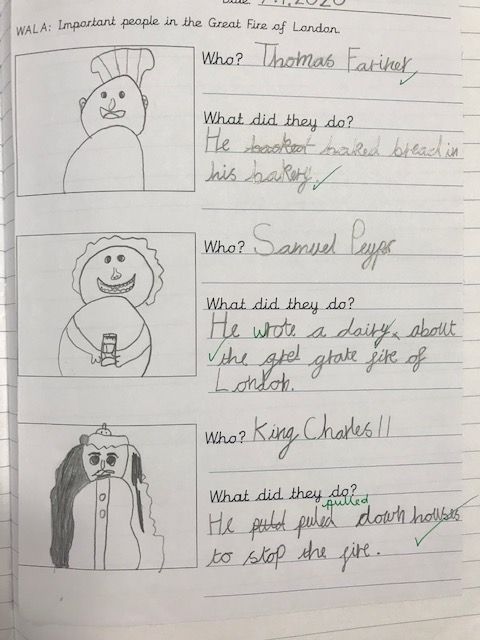 Date: 7.1.2020
WALA: Important people in the Great Fire of London.
Who? Thomas Fariner
What did they do?
He baked bread in
his bakery.
Who? Samuel Peyps
What did they do?
He wrote a dairy about
the gret grate fire of
London.
Who? King Charles II
What did they do?
pulled
He puld puled down houses
to stop the fire.